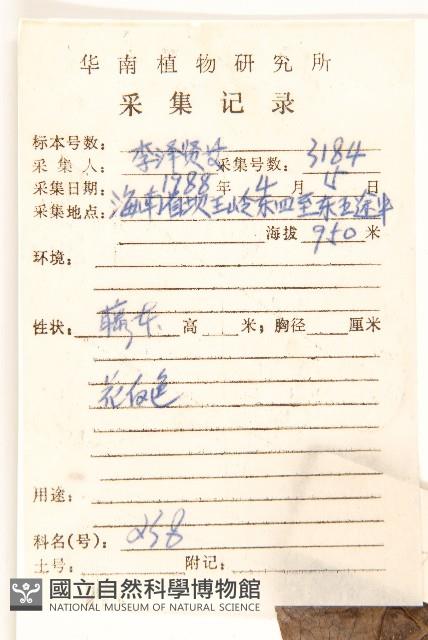 华南植物研究所
采集记录
标本号数：
采集人：李泽贤等 采集号数：3184
采集日期：1988年4月5日
采集地点：海南省坝王岭东四至东五途中
海拔950米
环境：
性状：藤本 高 米；胸径 厘米
花白色
用途：
科名(号)：
土号： 附记：
國立自然科學博物館
NATIONAL MUSEUM OF NATURAL SCIENCE